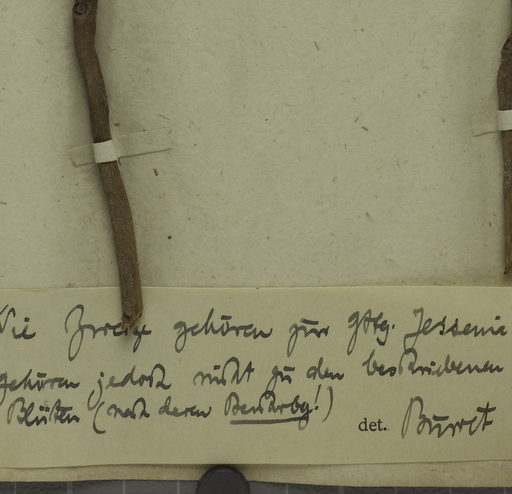 Die Zweige gehören zur Gttg. Jessenia
gehören jedoch nicht zu den beschriebenen
Blüten (nach deren Beschrbg!)
det. Burret